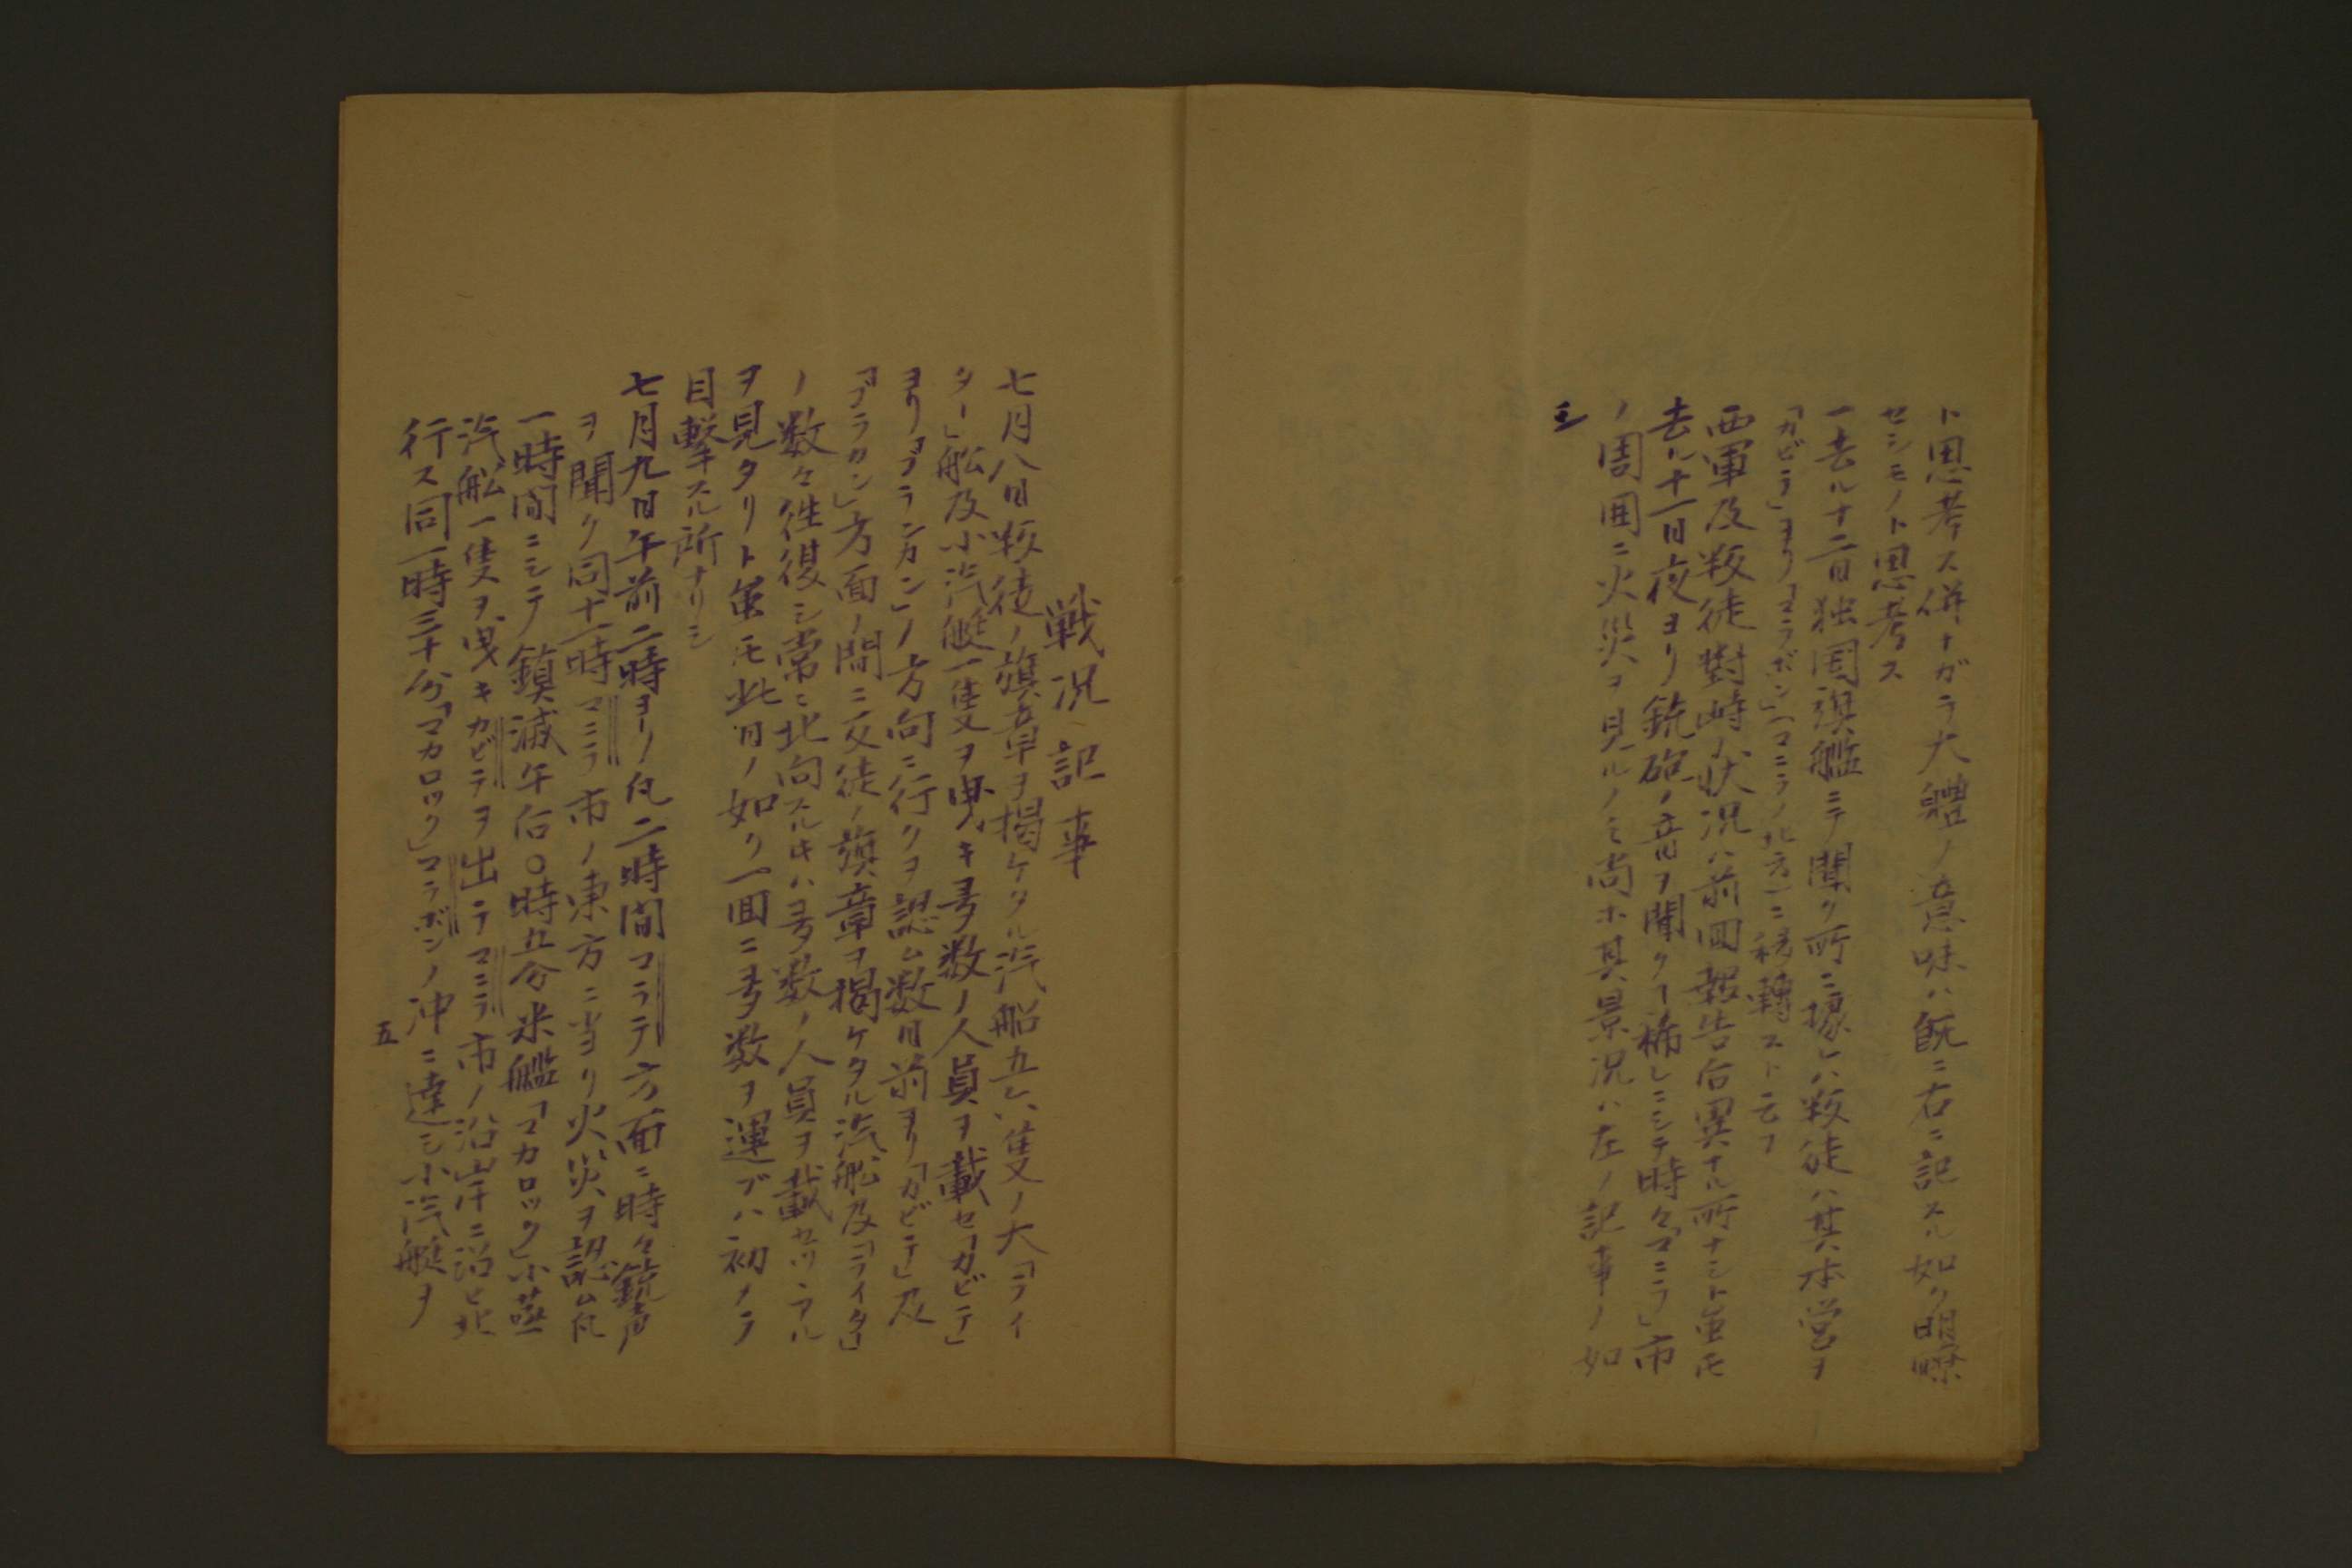 ト思考ス併ナガラ大體ノ意味ハ既ニ右ニ記スル如ク明瞭
セシモノト思考ス
一去ル十二日独国旗艦ニテ聞ク所ニ據レハ叛徒ハ其本営ヲ
「カビテ」ヨリ「マラボン」(マニラノ北方)ニ移轉スト云フ
西軍及叛徒對峙ノ状況ハ前回報告后異ナル所ナシト虽モ
去ル十一日夜ヨリ銃砲ノ音ヲ聞クヿ稀レニシテ時々「マニラ」市
ノ周囲ニ火災ヲ見ルノミ尚ホ其景况ハ左ノ記事ノ如
シ
戦况記事
七月八日叛徒ノ旗章ヲ掲ケタル汽船五六隻ノ大「ライ
ター」舩及小汽艇一隻ヲ曳キ多数ノ人員ヲ載セ「カビテ」
ヨリ「ブラカン」ノ方向ニ行クヲ認ム数日前ヨリ「カビテ」及
「ブラカン」方面ノ間ニ反徒ノ旗章ヲ掲ケタル汽舩及「ライター」
ノ数々往復シ常ニ北向スル片ハ多数ノ人員ヲ載セツヽアル
ヲ見タリト虽モ此日ノ如ク一回ニ多数ヲ運ブハ初メテ
目撃スル所ナリシ
七月九日午前二時ヨリ凡二時間マラテ方面ニ時々銃声
ヲ聞ク同十一時マニラ市ノ東方ニ当リ火災ヲ認ム凡
一時間ニシテ鎮滅午后〇時五分米艦「マカロック」小蒸
汽舩一隻ヲ曳キカビテヲ出テマニラ市ノ沿岸ニ沿ヒ北
行ス同一時三十分「マカロック」マラボンノ沖ニ達シ小汽艇ヲ
五